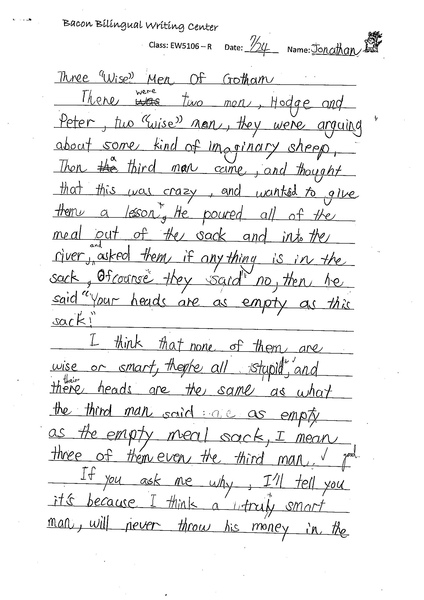 Bacon Bilingual Writing Center
Class: EW5106 – R Date: 7/24 Name: Jonathan
Three "Wise" Men Of Gotham
There were two men, Hodge and
Peter, two "wise" men, they were arguing
about some kind of imaginary sheep,
Then a third man came, and thought
that this was crazy, and wanted to give
them a lesson, He poured all of the
meal out of the sack and into the
river, and asked them if anything is in the
sack, Ofcourse they said no, then he
said "Your heads are as empty as this
sack!"
I think that none of them are
wise or smart, they're all stupid, and
their heads are the same as what
the third man said as empty
as the empty meal sack, I mean
three of them even the third man. good
If you ask me why, I'll tell you
it's because I think a truly smart
man, will never throw his money in the